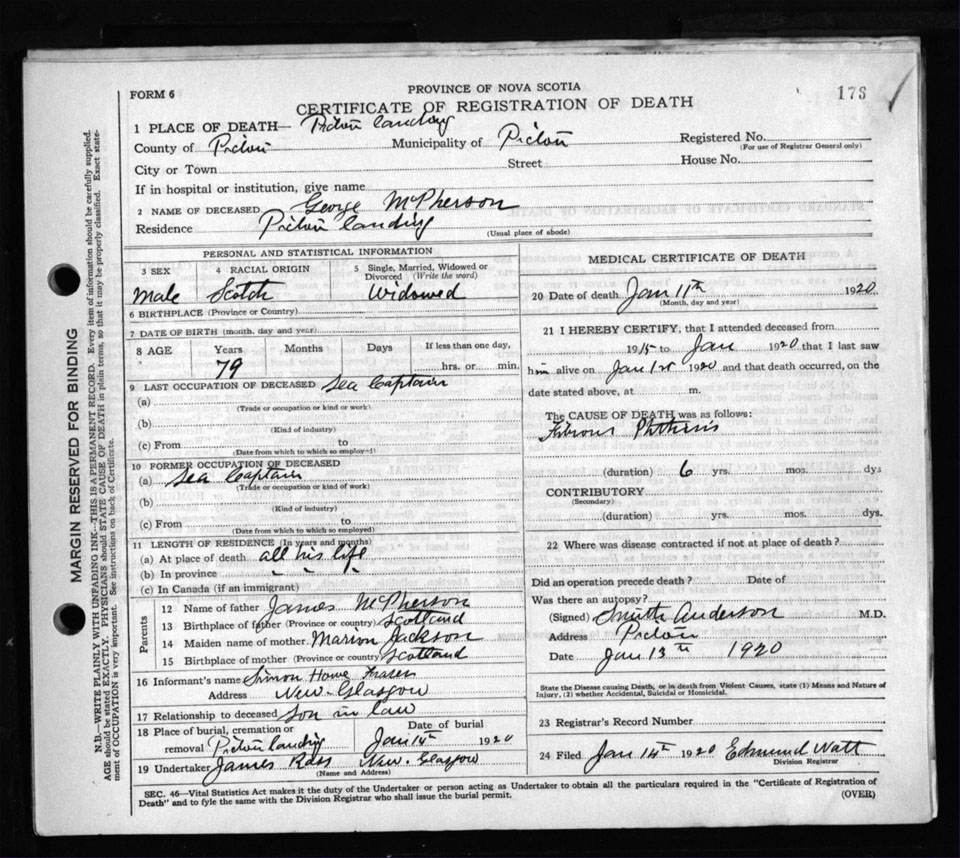 PROVINCE OF NOVA SCOTIA
FORM 6
CERTIFICATE OF REGISTRATION OF DEATH
176
1 PLACE OF DEATH— Pictou Landing
County of Pictou Municipality of Pictou Registered No.
(For use of Registrar General only)
City or Town Street House No.
If in hospital or institution, give name
2 NAME OF DECEASED George McPherson
Residence Pictou Landing
(Usual place of abode)
PERSONAL AND STATISTICAL INFORMATION
3 SEX 4 RACIAL ORIGIN 5 Single, Married, Widowed or Divorced (Write the word)
Male Scotch Widowed
6 BIRTHPLACE (Province or Country)
7 DATE OF BIRTH (month, day and year)
8 AGE Years Months Days If less than one day,
79 hrs. or min.
9 LAST OCCUPATION OF DECEASED Sea Captain
(a)
(Trade or occupation or kind or work)
(b)
(Kind of industry)
(c) From to
(Date from which to which so employed)
10 FORMER OCCUPATION OF DECEASED
(a) Sea Captain
(Trade or occupation or kind of work)
(b)
(Kind of industry)
(c) From to
(Date from which to which so employed)
11 LENGTH OF RESIDENCE (In years and months)
(a) At place of death all his life
(b) In province " " "
(c) In Canada (if an immigrant)
Parents
12 Name of father James McPherson
13 Birthplace of father (Province or country) Scotland
14 Maiden name of mother Marion Jackson
15 Birthplace of mother (Province or country) Scotland
16 Informant's name Simon Howe Fraser
Address New Glasgow
17 Relationship to deceased Son in law
18 Place of burial, cremation or Date of burial
removal Pictou Landing Jan 14th 1920
19 Undertaker James Ross New Glasgow
(Name and Address)
MEDICAL CERTIFICATE OF DEATH
20 Date of death Jan 11th 1920
(Month, day and year)
21 I HEREBY CERTIFY, that I attended deceased from
1915 to Jan 1920 that I last saw
him alive on Jan 1st 1920 and that death occurred, on the
date stated above, at m.
The CAUSE OF DEATH was as follows:
Fibrous Phthisis
(duration) 6 yrs. mos. dys
CONTRIBUTORY
(Secondary)
(duration) yrs. mos. dys.
22 Where was disease contracted if not at place of death?
Did an operation precede death? Date of
Was there an autopsy?
(Signed) Smith Anderson M.D.
Address Pictou
Date Jan 13th 1920
State the Disease causing Death, or in death from Violent Causes, state (1) Means and Nature of
Injury, (2) whether Accidental, Suicidal or Homicidal.
23 Registrar's Record Number
24 Filed Jan 14th 1920 Edmund Watt
Division Registrar
SEC. 46—Vital Statistics Act makes it the duty of the Undertaker or person acting as Undertaker to obtain all the particulars required in the "Certificate of Registration of
Death" and to fyle the same with the Division Registrar who shall issue the burial permit.
(OVER)
MARGIN RESERVED FOR BINDING
N.B.—WRITE PLAINLY WITH UNFADING INK—THIS IS A PERMANENT RECORD. Every item of information should be carefully supplied.
AGE should be stated EXACTLY. PHYSICIANS should STATE CAUSE OF DEATH in plain terms, so that it may be properly classified. Exact statement
of OCCUPATION is very important. See instructions on back of Certificate.